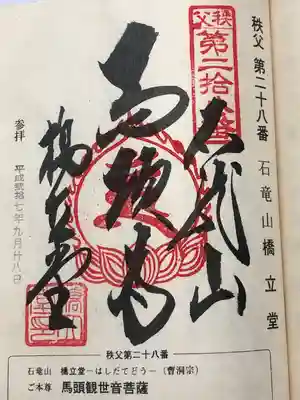 秩父 第二十八番 石竜山橋立堂
秩父
第二拾八番
石龍山
馬頭尊
橋立堂
参拝 平成弐拾七年九月廿八日
秩父第二十八番
石竜山 橋立堂―はしだてどう―(曹洞宗)
ご本尊 馬頭観世音菩薩